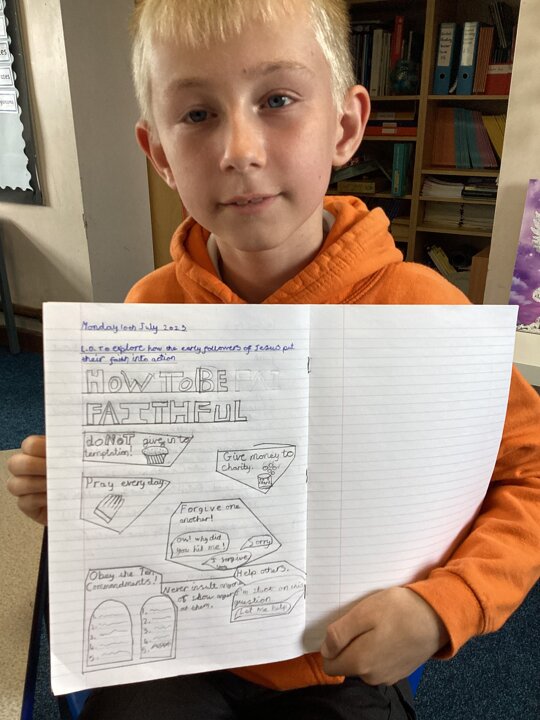 Monday 10th July 2023
L.O. To explore how the early followers of Jesus put
their faith into action
HOW TO BE
FAITHFUL
do NOT give in to
temptation!
Give money to
charity.
Pray every day
Forgive one
another!
Ow! why did
you hit me!
Sorry
I forgive
Obey the Ten
Commandments!
1.
2.
3.
4.
5.
1.
2.
3.
4.
5.
Never insult
or show anger
at them.
Help others.
I'm stuck on this
question
Let me help